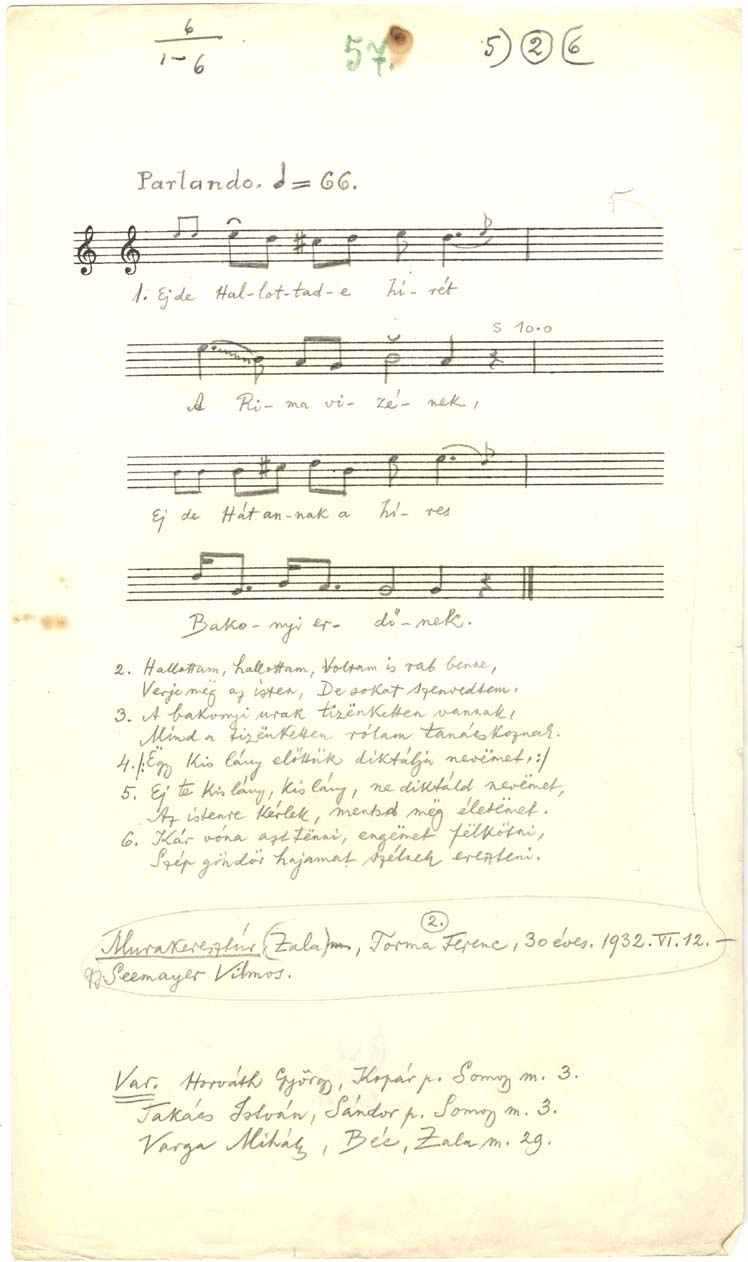 6
1-6
57.
5) 2 6
Parlando. ♩= 66.
1. Ej de Hal-lot-tad-e hí-rét
S 10.0
A Ri-ma vi-zé-nek,
Ej de Hát an-nak a hí-res
Bako-nyi er-dő-nek.
2. Hallottam, hallottam, Voltam is rab benne,
Verje mëg az isten, De sokat szenvedtem.
3. A bakonyi urak tizënketten vannak,
Mind a tizënketten rólam tanácskoznak.
4. /: Ëgy kis lány előttük diktálja nevëmet, :/
5. Ej te kis lány, kis lány, ne diktáld nevëmet,
Az istenre kérlek, mentsd mëg életëmet.
6. Kár vóna azt tënni, engëmet fëlkötni,
Szép göndör hajamat szélnek ereszteni.
2.
Murakeresztúr (Zala) m., Torma Ferenc, 30 éves. 1932. VI. 12. –
Seemayer Vilmos.
Var. Horváth György, Kopár p. Somogy m. 3.
Takács István, Sándor p. Somogy m. 3.
Varga Mihály, Béc, Zala m. 29.